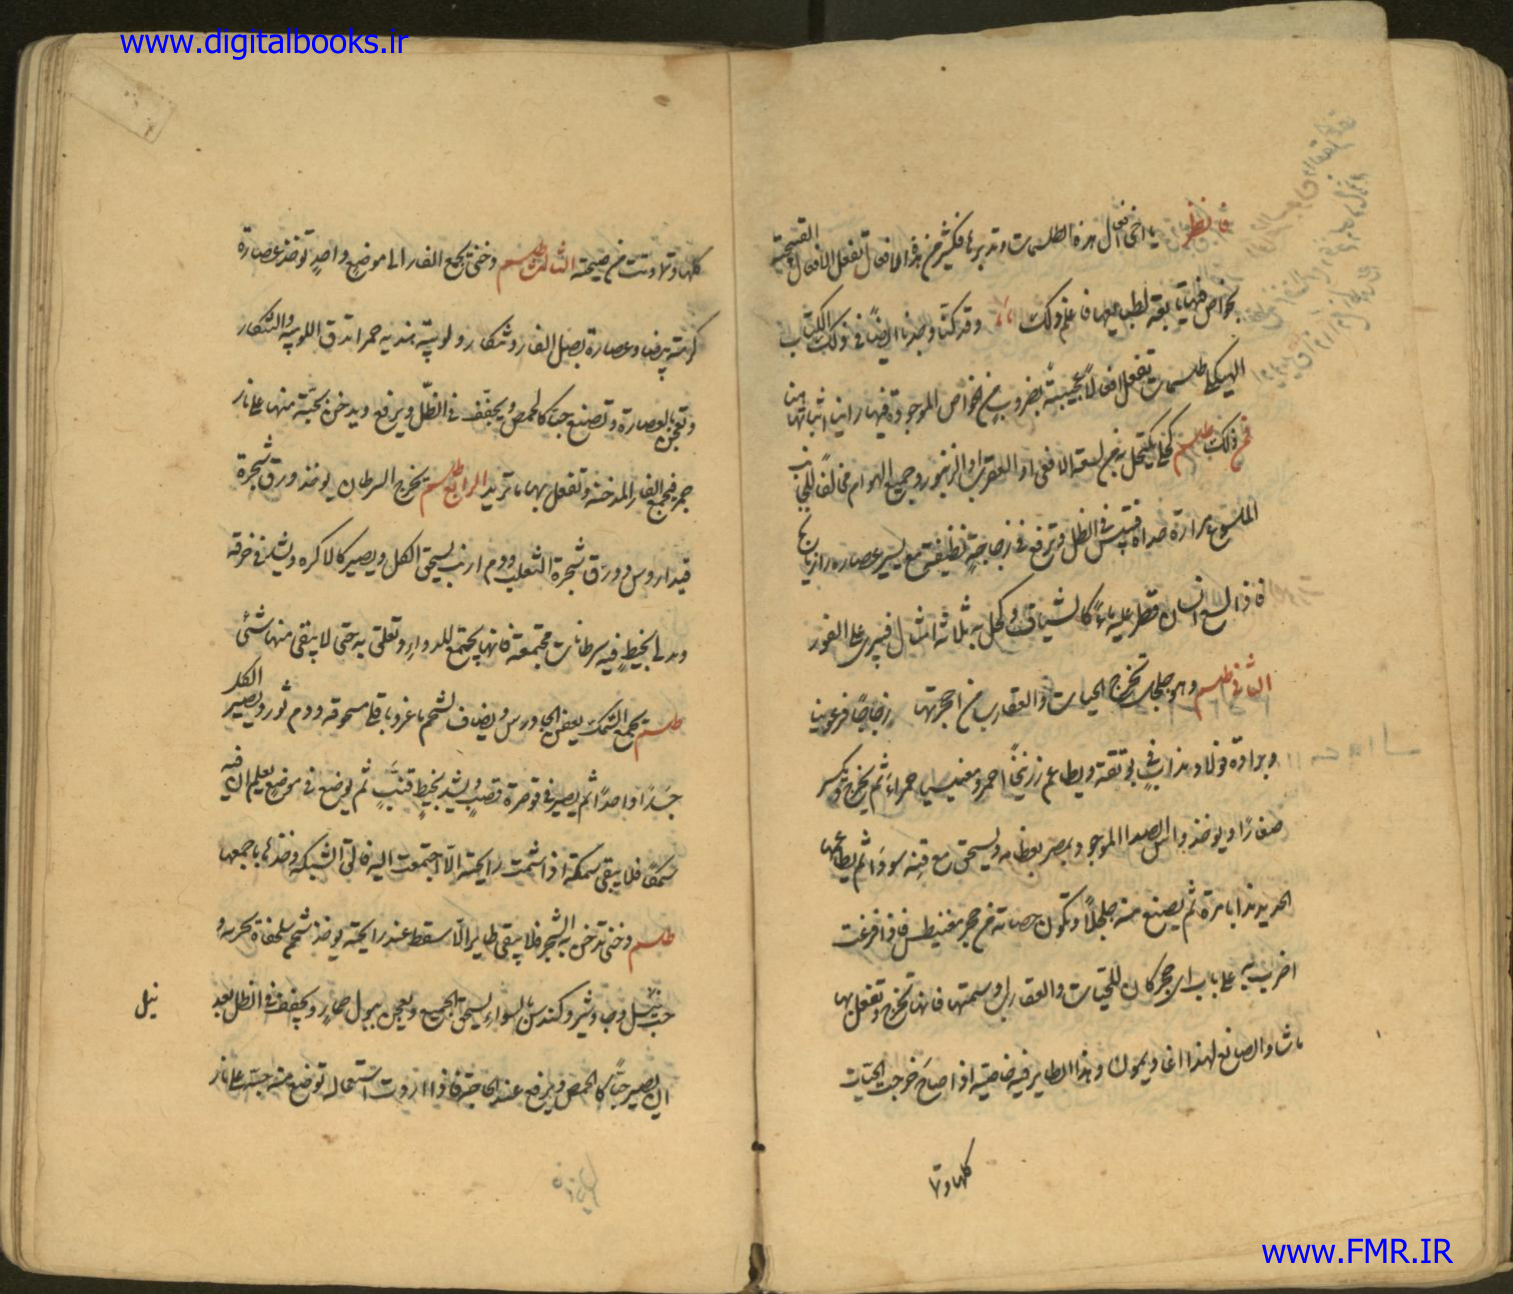 www.digitalbooks.ir
فانظر يا اخى افعال هذه الطلسمات وتدبرها فكثير من هذه الافعال تفعل الافعال القبيحة
بخواص فيها تابعة لطبايعها فاعلم ذلك وقد كنا وجدنا ايضًا فى ذلك الكتاب
الهيكلى طلسمات تفعل افعالًا عجيبة بضروب من الخواص الموجودة فيها راينا اثباتها هنا
فمن ذلك طلسم كحل يكتحل به من لسعة الافعى او العقرب او الزنبور وجميع الهوام مخالفًا للجانب
الملسوع مرارة حداه تيبس فى الظل وترفع فى زجاجةٍ نظيفة مع يسير عصاره رازيانج
فاذا لسع انسان قطر عليه ماءً كالشياف وكحل به ثلاثة اميال فيبرى على الفور
الثانى طلسم وهو جلجل تخرج الحيات والعقارب من اجحرتها زجاجًا فرعونيا
وبرادة فولاد يذاب فى بوتقة ويطاعم زرنيخًا احمر ومغنيسيا حمراء ثم يخرج وتكسر
صغارًا ويوخذ راس الصدا الموجود بمصر بعظامه ويسحق مع قنه سوًا ثم يطاعمها
الحديد ذايبا مرة ثم يصنع منه جلجلًا وتكون حصاته من حجر مغنيطس فاذا فرغت
اضرب به على باب اى جحر كان للحيات والعقارب وسمتها فانها تخرج وتفعل بها
ما شاء الصانع لهذا اغاديمون وهذا الطاير فيه خاصية اذا صاح خرجت الحيات
كلها وتما
كلها وتماوتت من صيحته الثالث طلسم دخنة تجمع الفار الى موضع واحدٍ توخذ عصارة
كرمته بيضا وعصارة بصل الفار وتنكار ولوبية هنديه حمرا تدق اللوبيه والتنكار
وتعجن بالعصارة وتصنع حبًا كالحمص ويجفف فى الظل ويرفع ويدخن بحبة منها على نار
جمر فيجمع الفار المدخنة وتفعل بها ما تريد الرابع طلسم يخرج السرطان يوخذ ورق شجرة
قيداروس وورق شجرة الثعلب ودم ارنب يسحق الكل ويصير كالاكره ويشد فى خرقه
ويدلى بخيطٍ فيه سرطانات مجتمعة فانها تجتمع للدوار وتعلق به حتى لا يبقى منها شئى
طلسم يجمع السمك يعفن الجاورس ويضاف لشحم ماعز وباقلى مسحوقه ودم ثور ويصير الكل
جسدًا واحدًا ثم يصير فى قوصرة قصبٍ ويشد بخيطٍ قنبٍ ثم يوضع فى موضع يعلم ان فيه
سمكًا فلا يبقى سمكة اذا شمت رايحته الا اجتمعت اليه فالق الشبكه وخذها باجمعها
طلسم دخنة تدخن به الشجر فلا يبقى طايرا الا سقط عند رايحته يوخذ شحم سلحفاة بحريه و
حب نيل وحب وشير وكندس بالسواء يسحق الجميع ويعجن ببول حمارٍ ويجفف فى الظل بعد
نيل
ان يصير حبًا كالحمص ويرفع عند الحاجة فاذا اردت استعماله توضع منه حبة على نار
www.FMR.IR